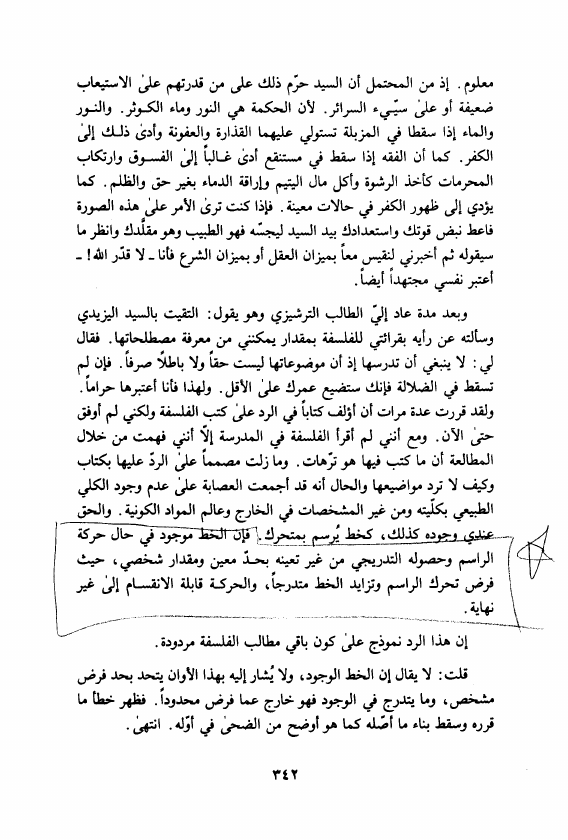 معلوم. إذ من المحتمل أن السيد حرّم ذلك على من قدرتهم علىٰ الاستيعاب
ضعيفة أو علىٰ سيّىء السرائر. لأن الحكمة هي النور وماء الكوثر. والنور
والماء إذا سقطا في المزبلة تستولي عليهما القذارة والعفونة وأدىٰ ذلك إلىٰ
الكفر. كما أن الفقه إذا سقط في مستنقع أدىٰ غالباً إلىٰ الفسوق وارتكاب
المحرمات كأخذ الرشوة وأكل مال اليتيم وإراقة الدماء بغير حق والظلم. كما
يؤدي إلى ظهور الكفر في حالات معينة. فإذا كنت ترىٰ الأمر علىٰ هذه الصورة
فاعط نبض قوتك واستعدادك بيد السيد ليجسّه فهو الطبيب وهو مقلَّدك وانظر ما
سيقوله ثم أخبرني لنقيس معاً بميزان العقل أو بميزان الشرع فأنا ـ لا قدّر الله! ـ
أعتبر نفسي مجتهداً أيضاً.
وبعد مدة عاد إليّ الطالب الترشيزي وهو يقول: التقيت بالسيد اليزيدي
وسألته عن رأيه بقرائتي للفلسفة بمقدار يمكنني من معرفة مصطلحاتها. فقال
لي: لا ينبغي أن تدرسها إذ أن موضوعاتها ليست حقاً ولا باطلاً صرفاً. فإن لم
تسقط في الضلالة فإنك ستضيع عمرك علىٰ الأقل. ولهذا فأنا أعتبرها حراماً.
ولقد قررت عدة مرات أن أؤلف كتاباً في الرد علىٰ كتب الفلسفة ولكني لم أوفق
حتىٰ الآن. ومع أنني لم أقرأ الفلسفة في المدرسة إلّا أنني فهمت من خلال
المطالعة أن ما كتب فيها هو ترّهات. وما زلت مصمماً علىٰ الردّ عليها بكتاب
وكيف لا ترد مواضيعها والحال أنه قد أجمعت العصابة علىٰ عدم وجود الكلي
الطبيعي بكلّيته ومن غير المشخصات في الخارج وعالم المواد الكونية. والحق
عندي وجوده كذلك، كخط يُرسم بمتحرك. فإن الخط موجود في حال حركة
الراسم وحصوله التدريجي من غير تعينه بحدّ معين ومقدار شخصي، حيث
فرض تحرك الراسم وتزايد الخط متدرجاً، والحركة قابلة الانقسام إلىٰ غير
نهاية.
إن هذا الرد نموذج علىٰ كون باقي مطالب الفلسفة مردودة.
قلت: لا يقال إن الخط الوجود، ولا يُشار إليه بهذا الأوان يتحد بحد فرض
مشخص، وما يتدرج في الوجود فهو خارج عما فرض محدوداً. فظهر خطأ ما
قرره وسقط بناء ما أصّله كما هو أوضح من الضحىٰ في أوّله. انتهىٰ.
٣٤٢